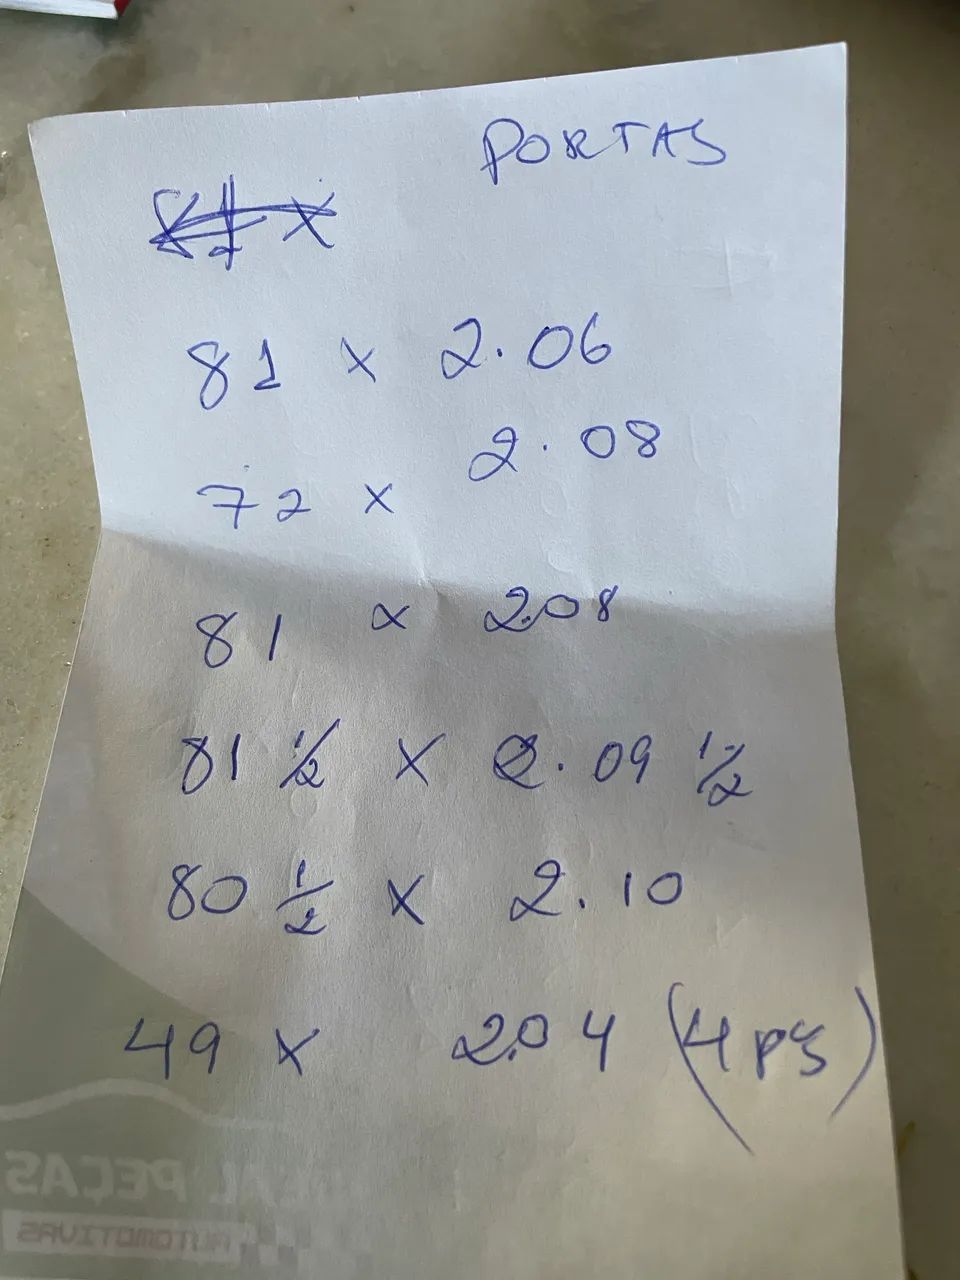 PORTAS
81 x 2.06
72 x 2.08
81 x 2.08
81 1/2 x 2.09 1/2
80 1/2 x 2.10
49 x 2.04 (4 PÇ)
PEÇAS
AUTOMOTIVAS